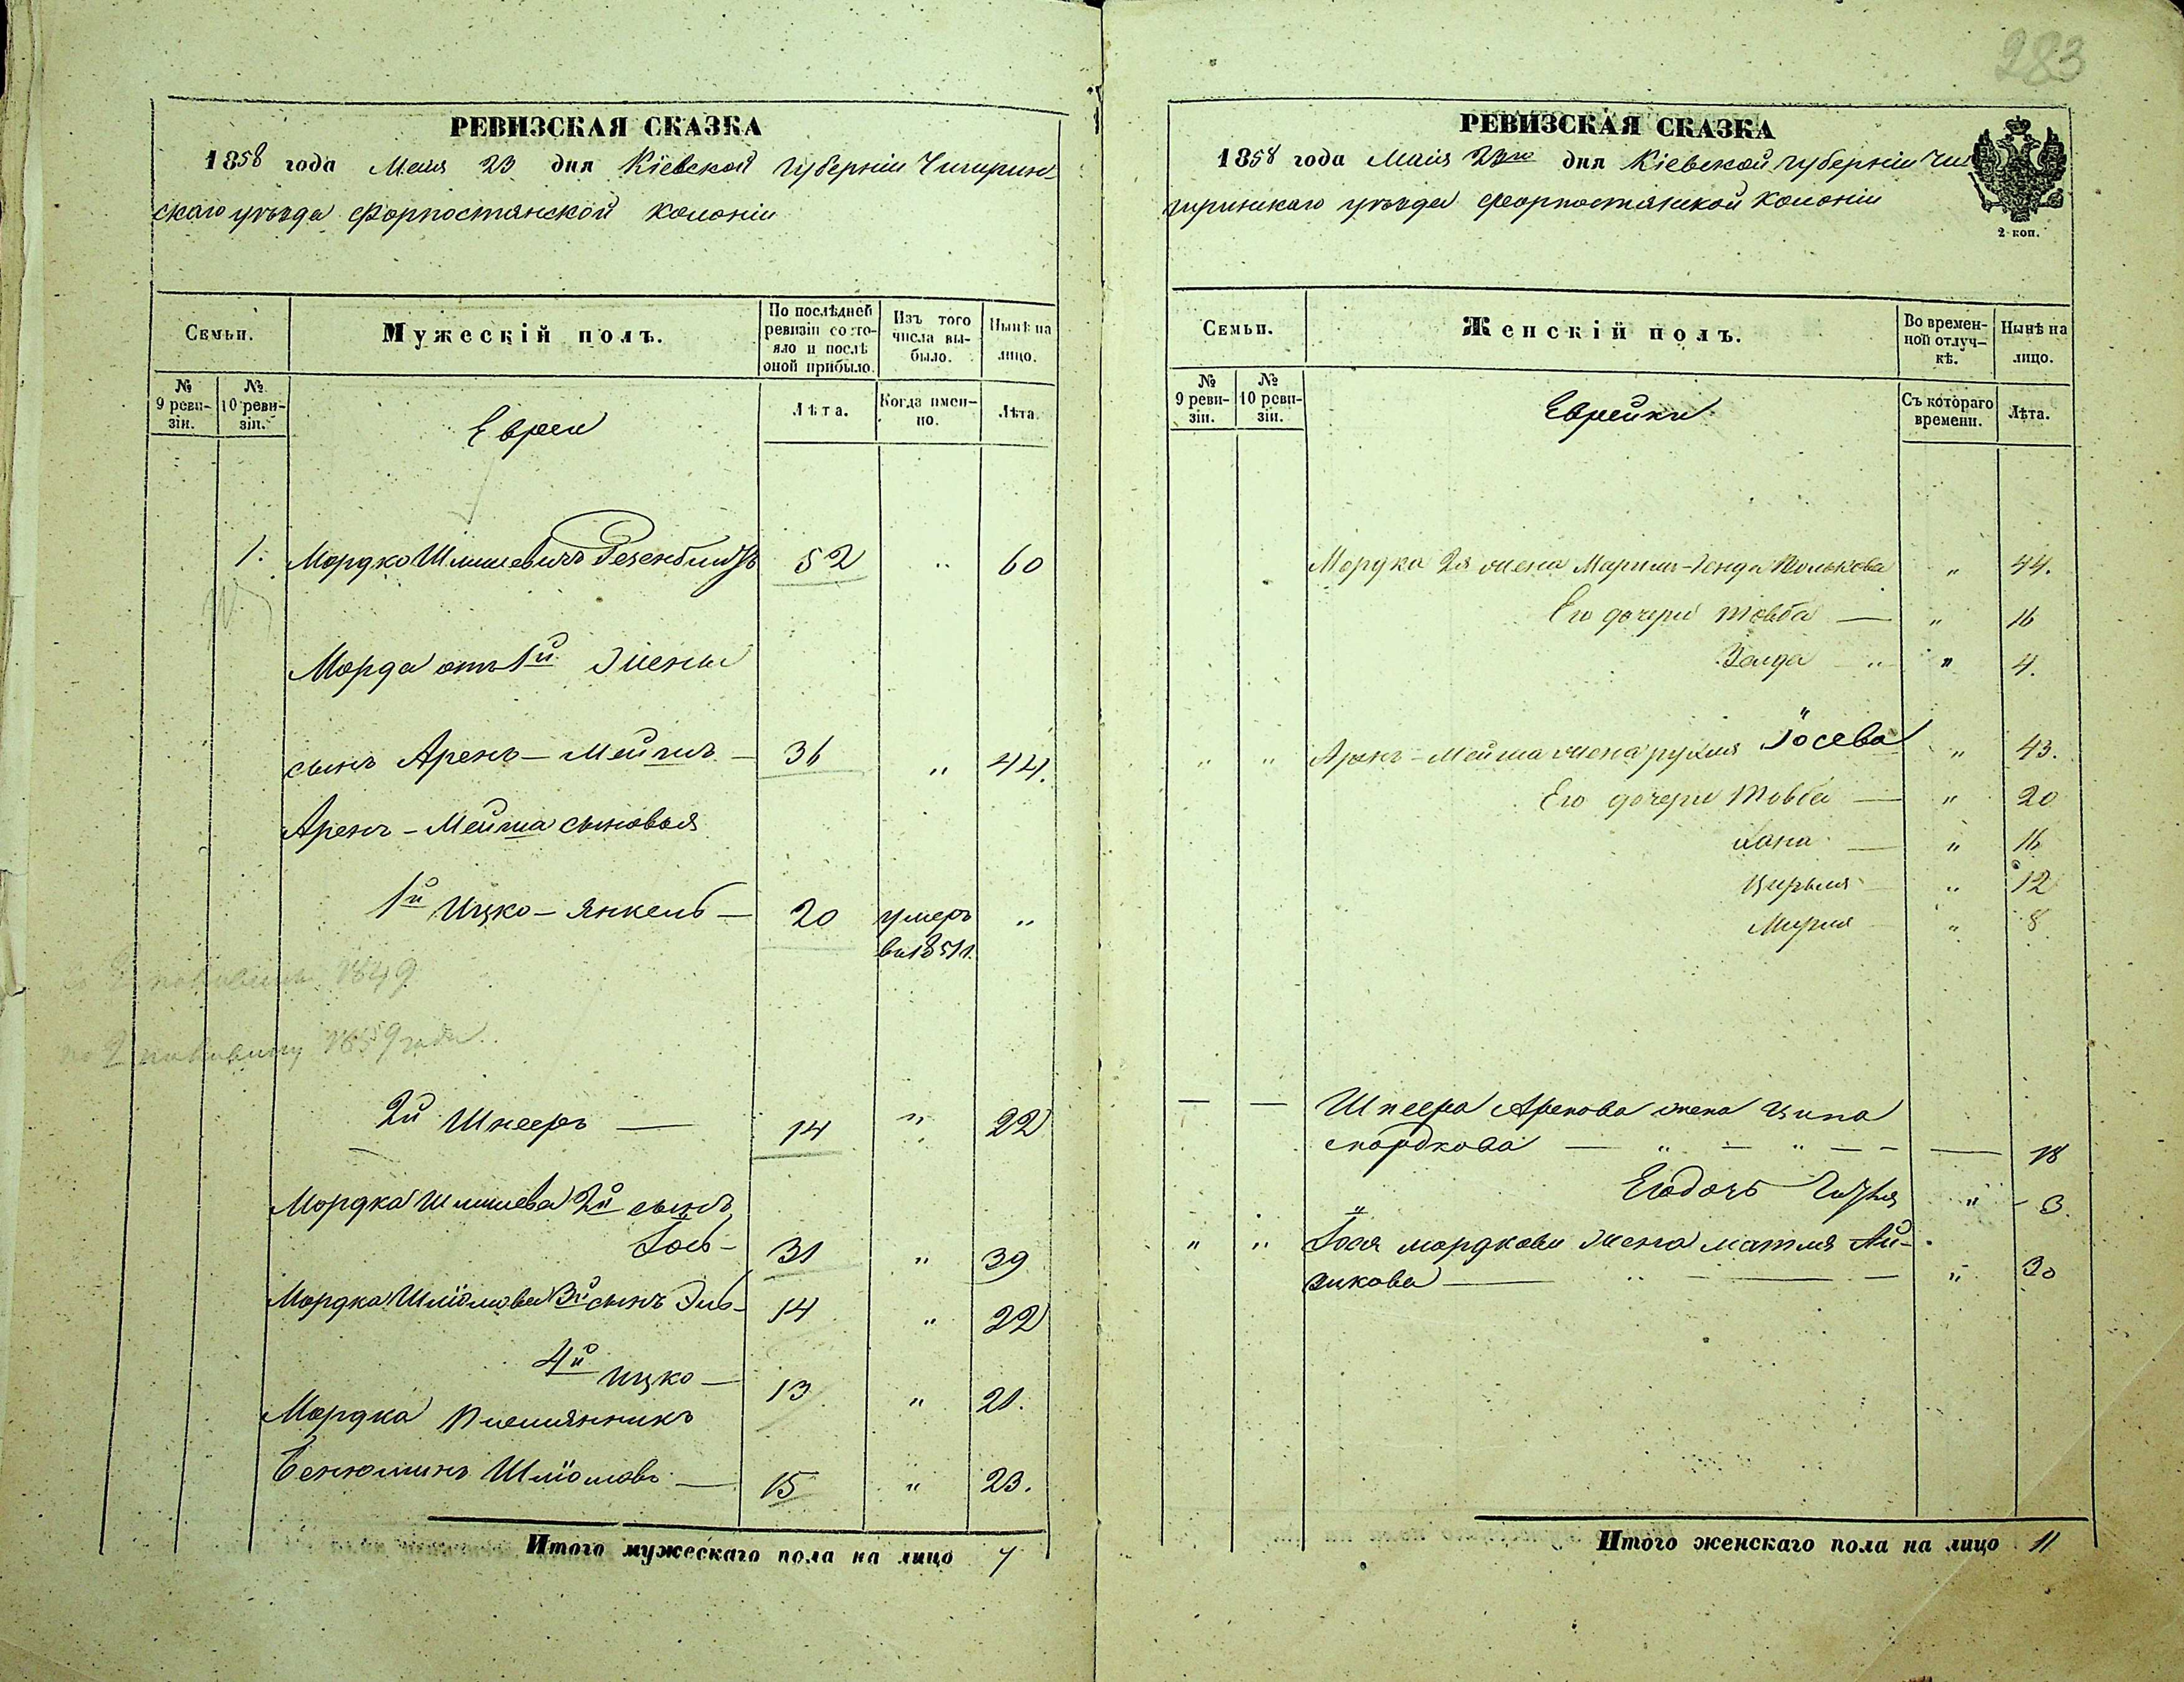 РЕВИЗСКАЯ СКАЗКА
1858 года Мая 23 дня Кіевской губерніи Чигирин-
скаго уѣзда Форпостянской колоніи
Семьи.
Мужескій полъ.
По послѣдней ревизіи состо-
яло и послѣ оной прибыло.
Изъ того числа вы-
было.
Нынѣ на лицо.
№ 9 реви-
зіи.
№ 10 реви-
зіи.
Евреи
Лѣта.
Когда имен-
но.
Лѣта.
1. Мордко Шлиомевичъ 52 " 60
Мордка отъ 1й жены
сынъ Аренъ-Мейша — 36 " 44.
Аренъ-Мейша сыновья
1й Ицко-Янкель — 20 умеръ "
въ 1851 г.
1849
по 2 половину 1859 года.
2й Шнееръ — 14 " 22
Мордка Шліомова 2й сынъ
Іось — 31 " 39
Мордка Шліомова 3й сынъ Эль- 14 " 22
4й Ицко — 13 " 21.
Мордка племянникъ
Бенюминъ Шліомовъ — 15 " 23.
Итого мужескаго пола на лицо 7
283
РЕВИЗСКАЯ СКАЗКА
1858 года Мая 23го дня Кіевской губерніи Чи
гиринскаго уѣзда Форпостянской колоніи
2 коп.
Семьи.
Женскій полъ.
Во времен-
ной отлуч-
кѣ.
Нынѣ на лицо.
№ 9 реви-
зіи.
№ 10 реви-
зіи.
Еврейки
Съ котораго времени.
Лѣта.
Мордка 2я жена " 44.
Его дочери Товба — " 16
Золда " " 4.
" " Аренъ-Мейша жена Рухля Іосева " 43.
Его дочери Товба — " 20
Хана — " 16
Цирля " 12
Мирля " 8
— — Шнеера Аренова жена Ципа
Мордкова — " — " — — — 18
Его дочь " 3.
" " Іося Мордкова жена Матля Ай-
зикова — " — — " 30
Итого женскаго пола на лицо 11